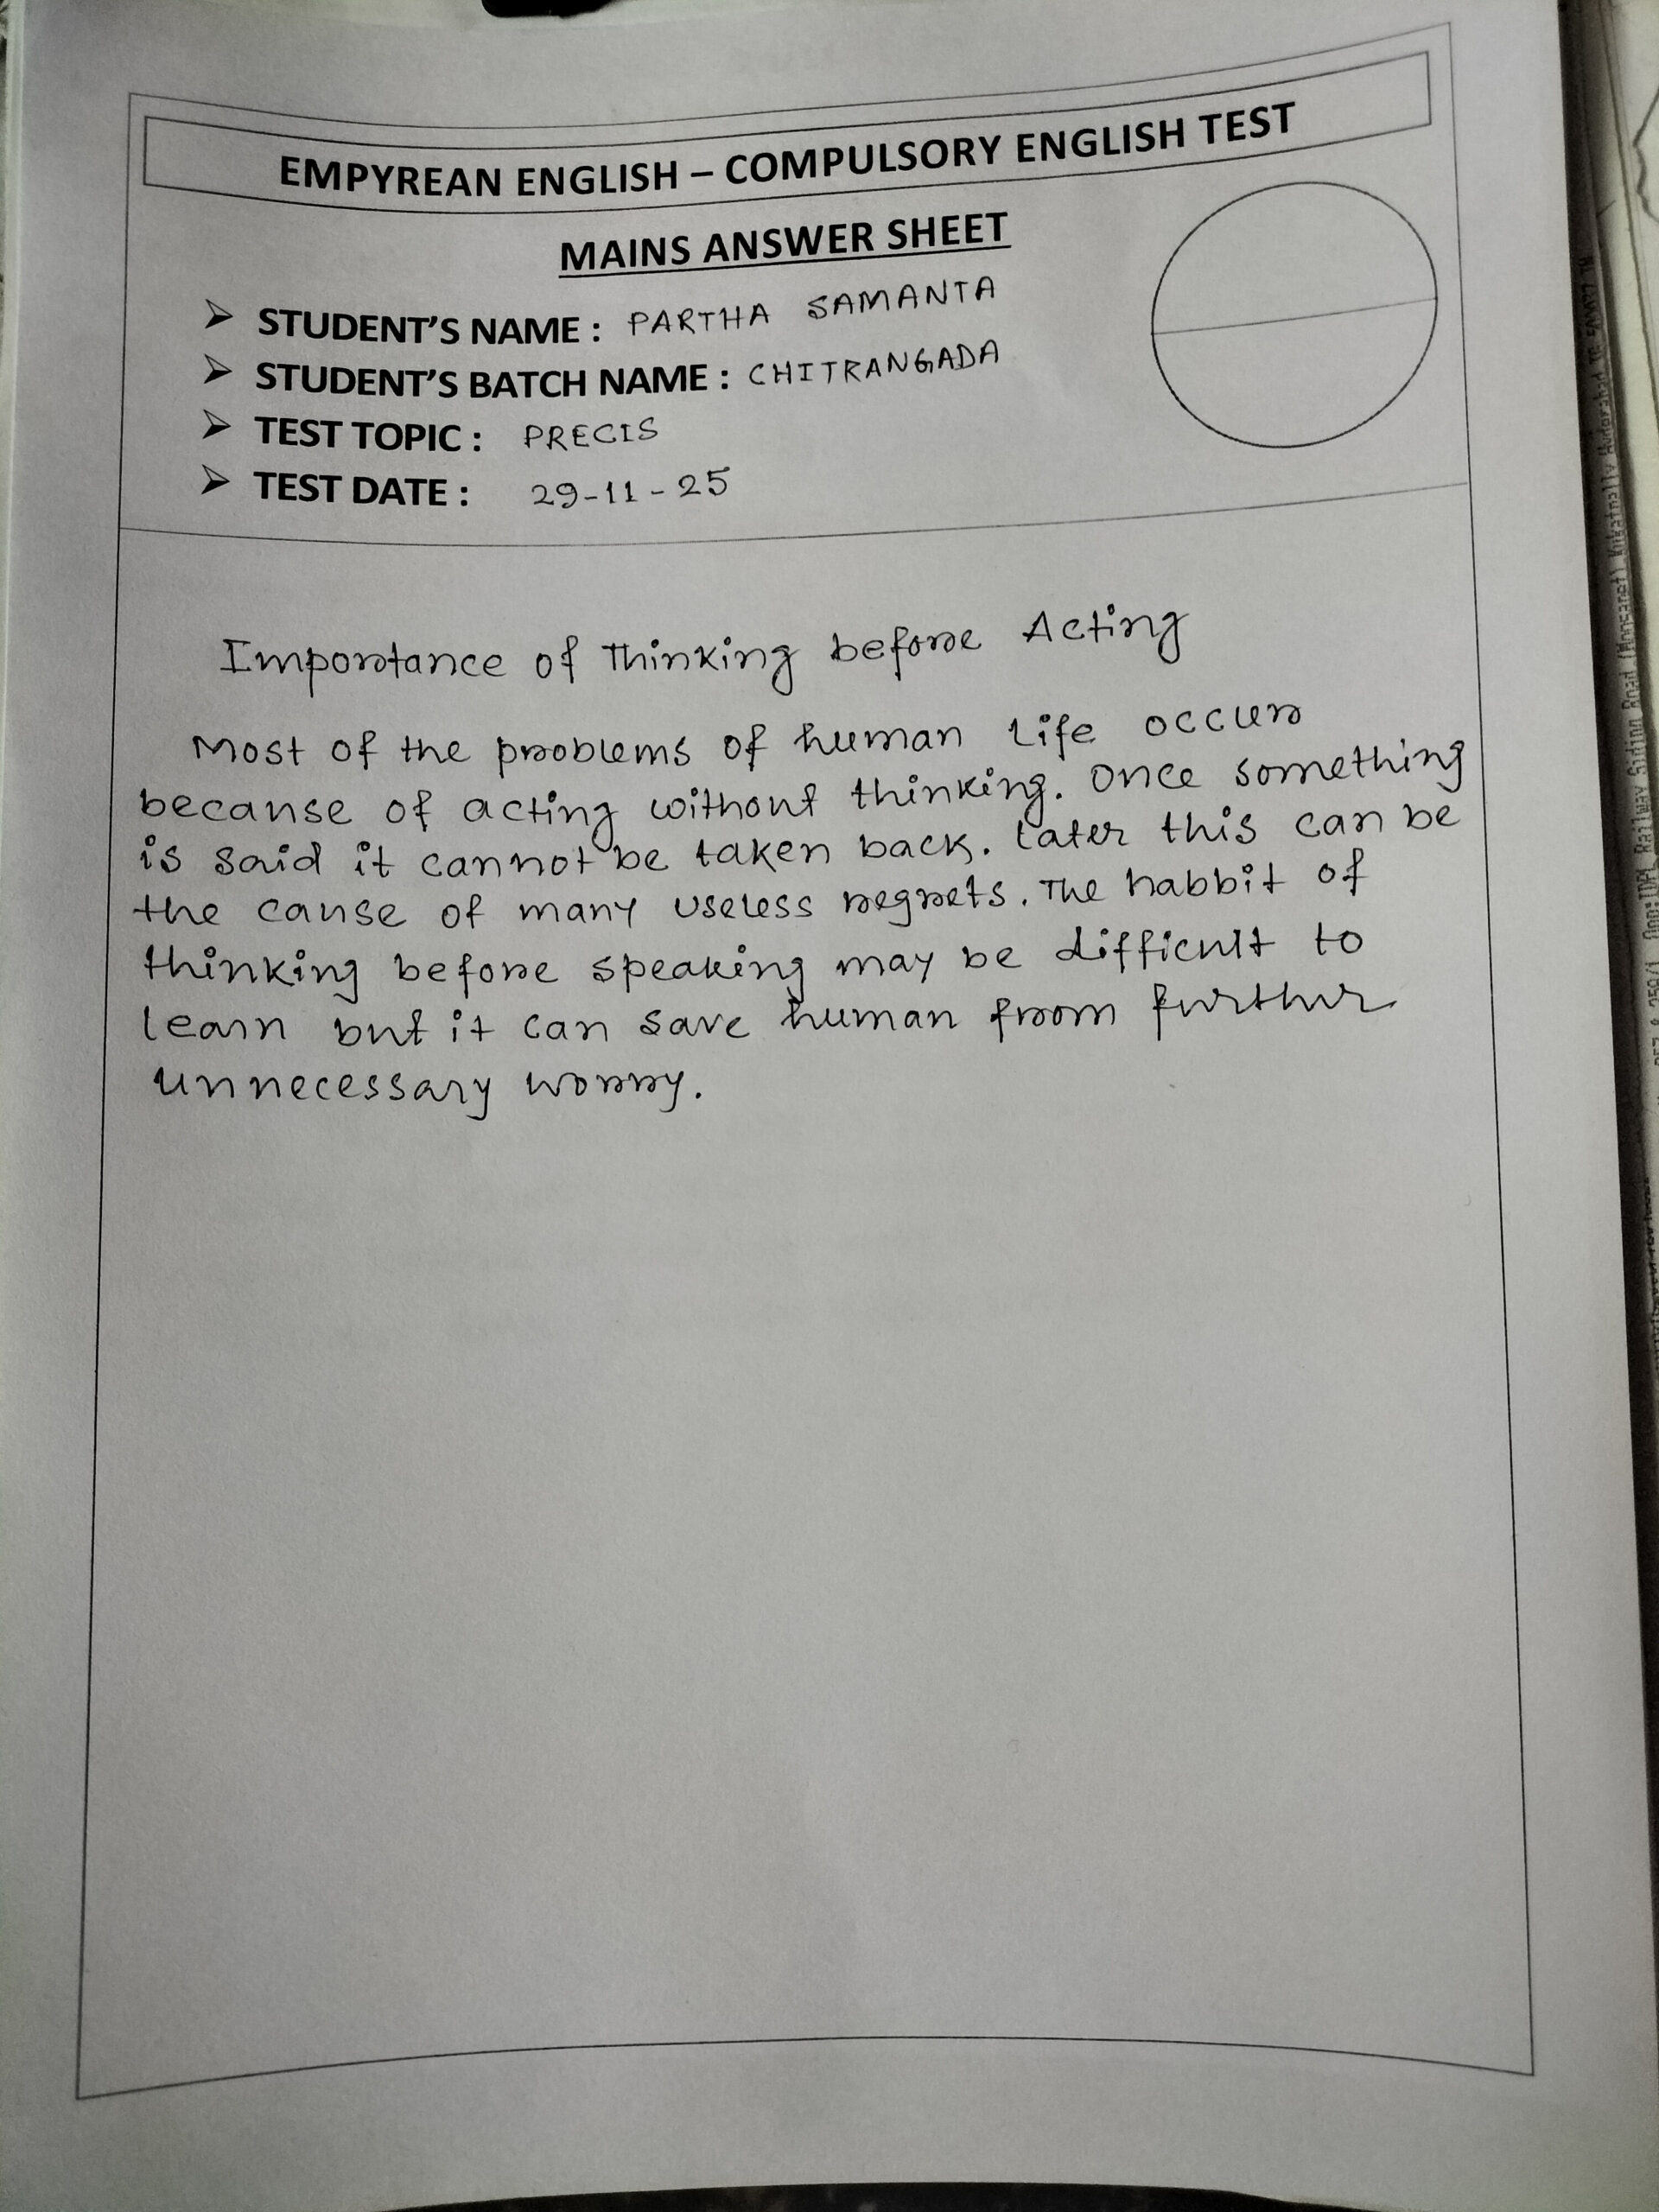 EMPYREAN ENGLISH – COMPULSORY ENGLISH TEST
MAINS ANSWER SHEET
➢ STUDENT'S NAME : PARTHA SAMANTA
➢ STUDENT'S BATCH NAME : CHITRANGADA
➢ TEST TOPIC : PRECIS
➢ TEST DATE : 29-11-25
Importance of Thinking before Acting
Most of the problems of human life occur
because of acting without thinking. Once something
is said it cannot be taken back. Later this can be
the cause of many useless regrets. The habbit of
thinking before speaking may be difficult to
learn but it can save human from further
unnecessary worry.